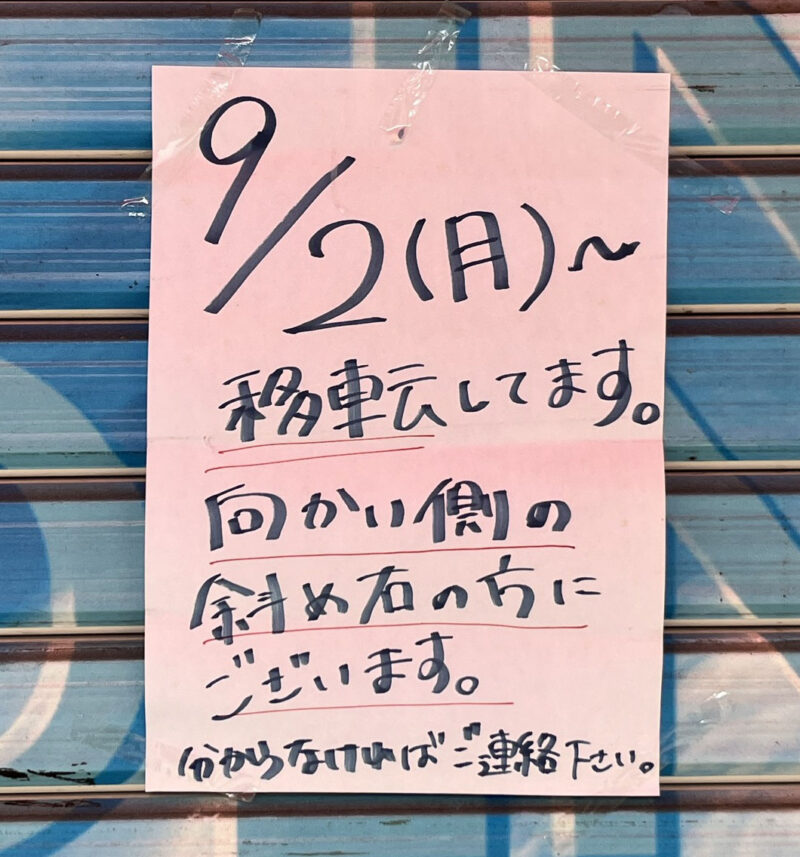 9/2(月)~
移転してます。
向かい側の
斜め右の方に
ございます。
分からなければご連絡下さい。